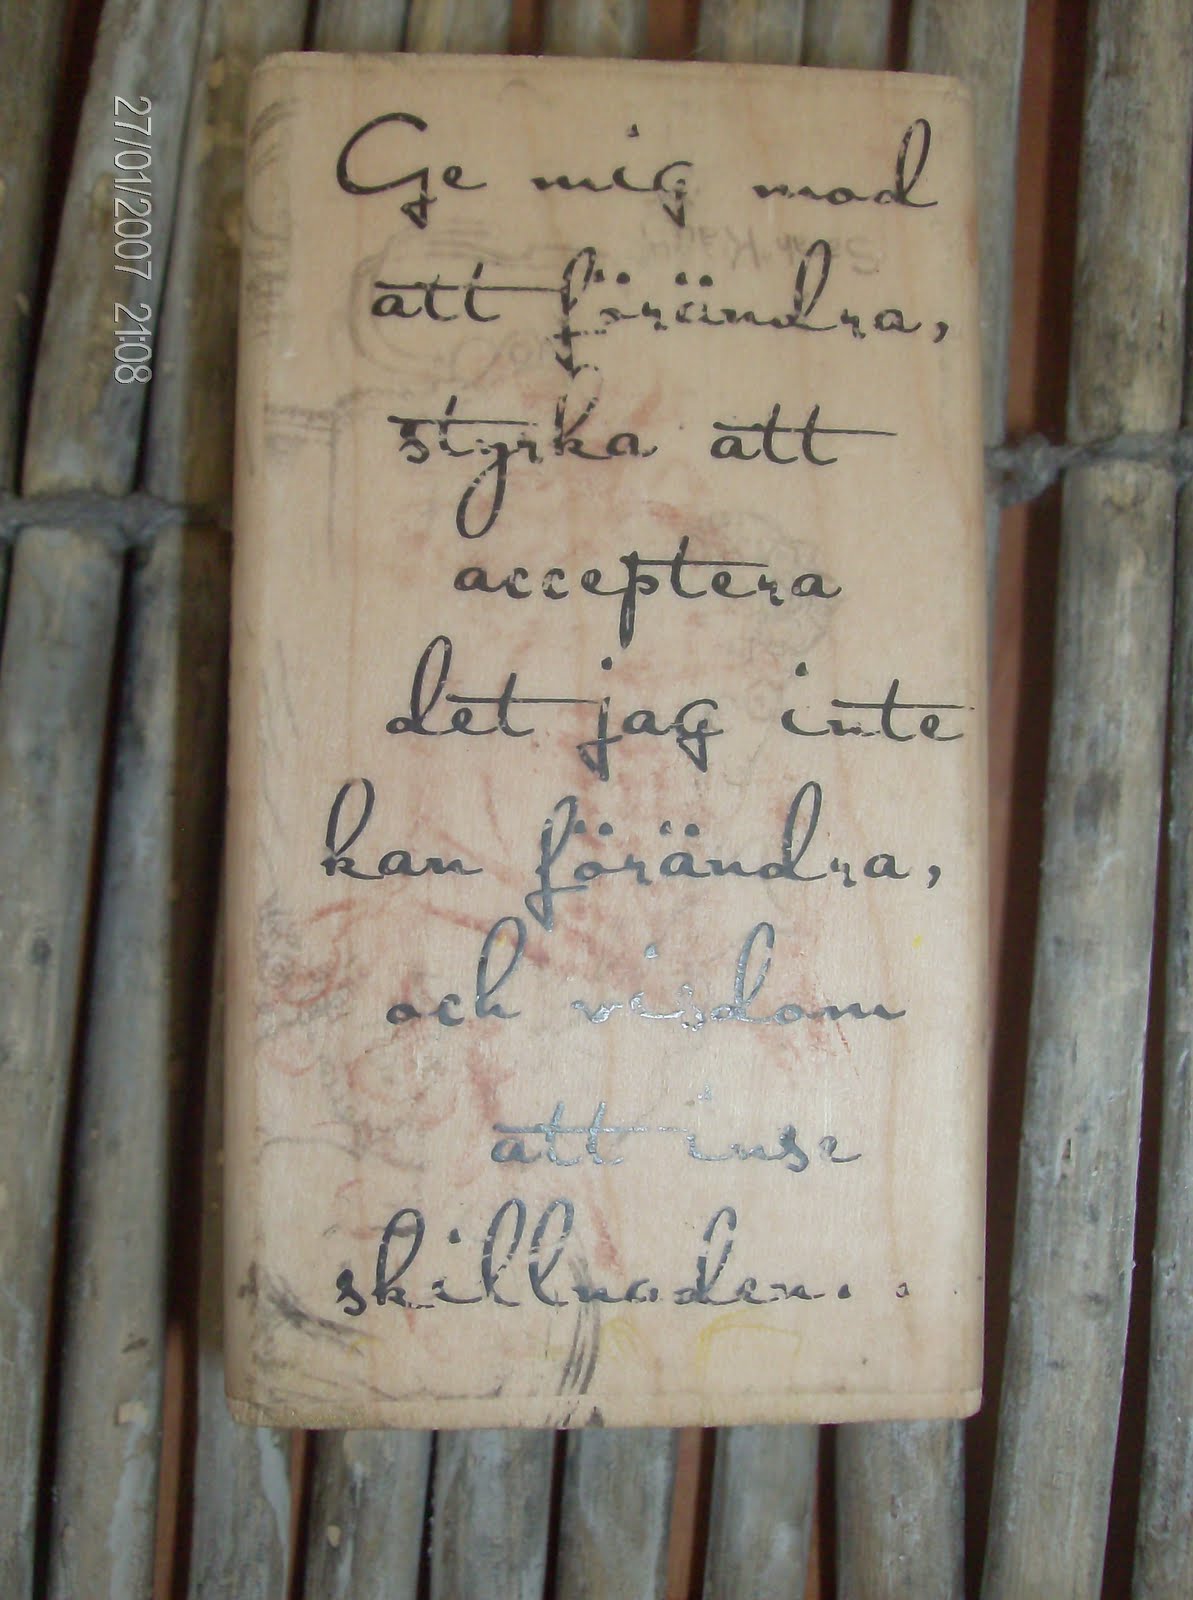 27/01/2007 21:08
Ge mig mod
att förändra,
styrka att
acceptera
det jag inte
kan förändra,
och visdom
att inse
skillnaden.